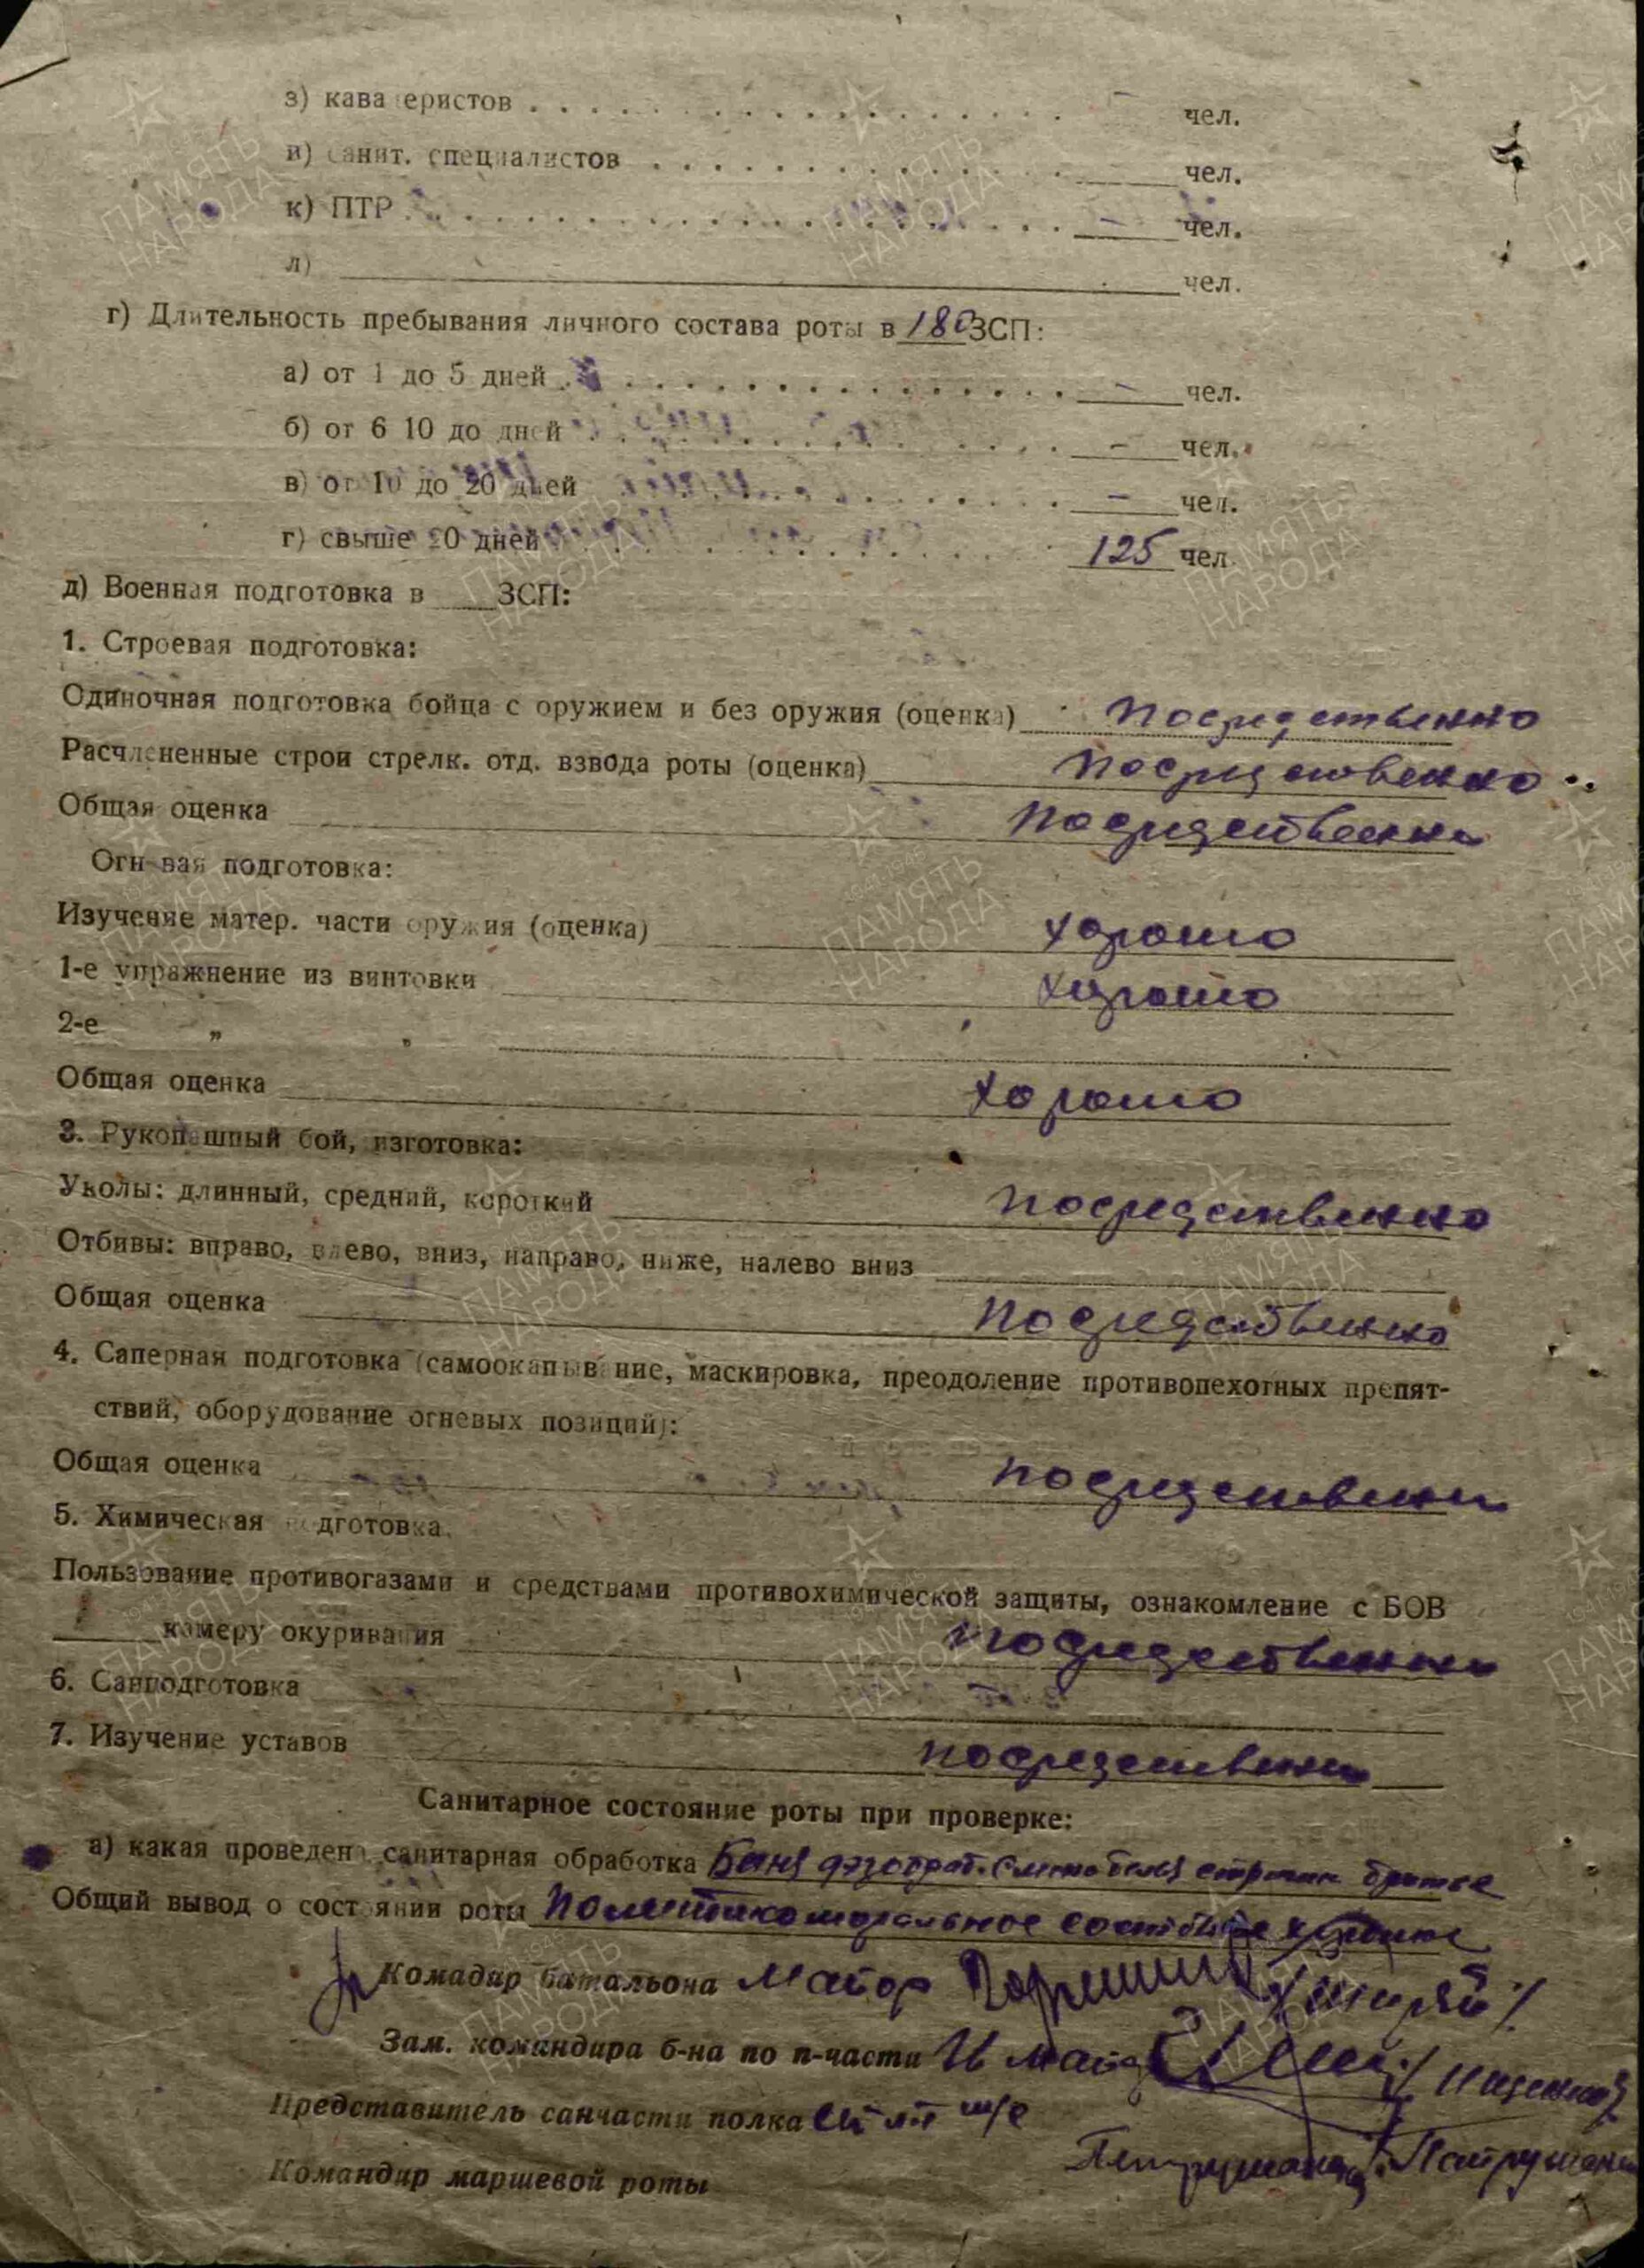 з) кава еристов . . . . . . . . . . . . . . . . . . . – чел.
и) санит. специалистов . . . . . . . . . . . . . . чел.
к) ПТР . . . . . . . . . . . . . . . . . . . . . . . – чел.
л) чел.
г) Длительность пребывания личного состава роты в 180 ЗСП:
а) от 1 до 5 дней . . . . . . . . . . . . . . . . . – чел.
б) от 6 10 до дней . . . . . . . . . . . . . . . . – чел.
в) от 10 до 20 дней . . . . . . . . . . . . . . . . – чел.
г) свыше 20 дней . . . . . . . . . . . . . . . . 125 чел.
д) Военная подготовка в ____ЗСП:
1. Строевая подготовка:
Одиночная подготовка бойца с оружием и без оружия (оценка) посредственно
Расчлененные строи стрелк. отд. взвода роты (оценка) посредственно
Общая оценка посредственно
Огн вая подготовка:
Изучение матер. части оружия (оценка) хорошо
1-е упражнение из винтовки хорошо
2-е „ „
Общая оценка хорошо
3. Рукопашный бой, изготовка:
Уколы: длинный, средний, короткий посредственно
Отбивы: вправо, влево, вниз, направо, ниже, налево вниз
Общая оценка посредственно
4. Саперная подготовка (самоокапывание, маскировка, преодоление противопехотных препят-
ствий, оборудование огневых позиций):
Общая оценка посредственно
5. Химическая подготовка.
Пользование противогазами и средствами противохимической защиты, ознакомление с БОВ
камеру окуривания посредственно
6. Санподготовка
7. Изучение уставов посредственно
Санитарное состояние роты при проверке:
а) какая проведена санитарная обработка Баня дэзобраб. смена белья стрижка бритье
Общий вывод о состоянии роты Политикоморальное состояние хорошее
Комадир батальона Майор /Ширяй/
Зам. командира б-на по п-части
Представитель санчасти полка ст л-т м/с
Командир маршевой роты
ПАМЯТЬ НАРОДА